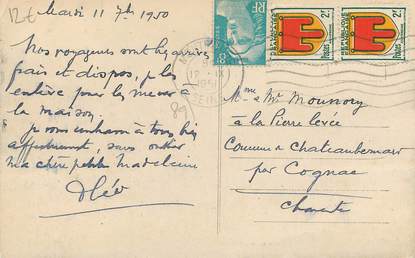 12€
Mardi 11 7bre 1950
Nos voyageurs sont bien arrivés
frais et dispos, je les
enlève pour les mener à
la maison.
Je vous embrasse à tous bien
affectueusement, sans oublier
ma chère petite Madeleine
Cléo
89
RF
POSTES
2F
POSTES
2F
SEINE
Mme & Mr Mounory
à la Pierre levée
Commune de Chateaubernard
par Cognac
Charente